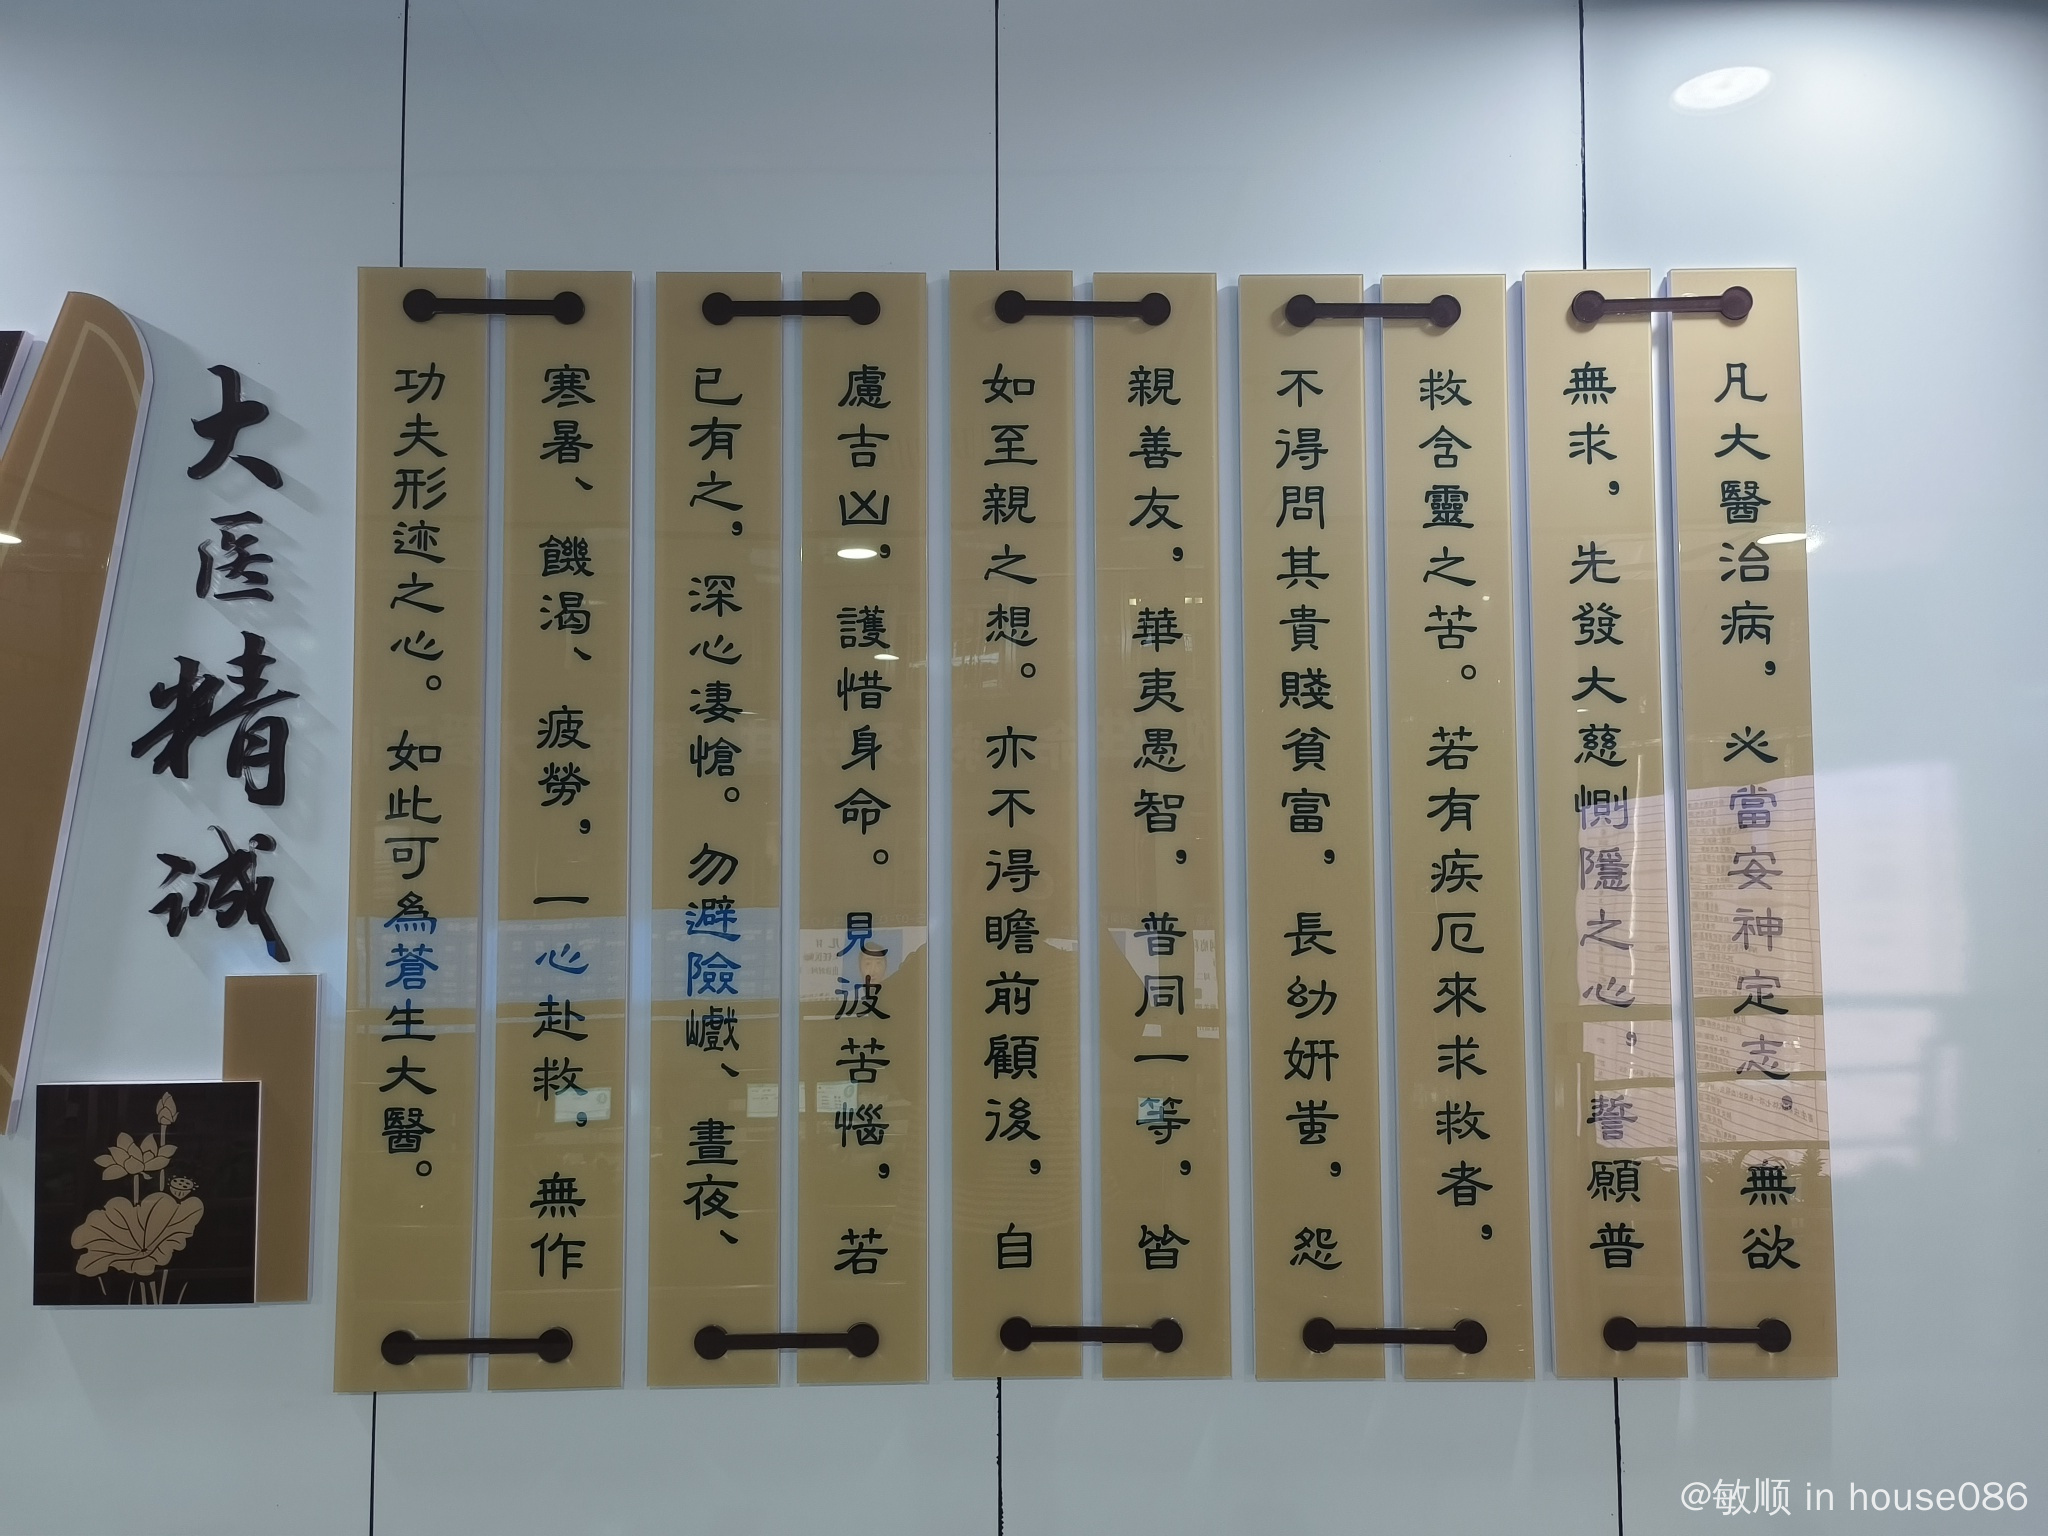 凡大醫治病，必當安神定志，無欲
無求，先發大慈惻隱之心，誓願普
救含靈之苦。若有疾厄來求救者，
不得問其貴賤貧富，長幼妍蚩，怨
親善友，華夷愚智，普同一等，皆
如至親之想。亦不得瞻前顧後，自
慮吉凶，護惜身命。見波苦惱，若
已有之，深心凄愴。勿避險巇、晝夜、
寒暑、饑渴、疲勞，一心赴救，無作
功夫形迹之心。如此可為蒼生大醫。
大医精诚
@敏顺 in house086